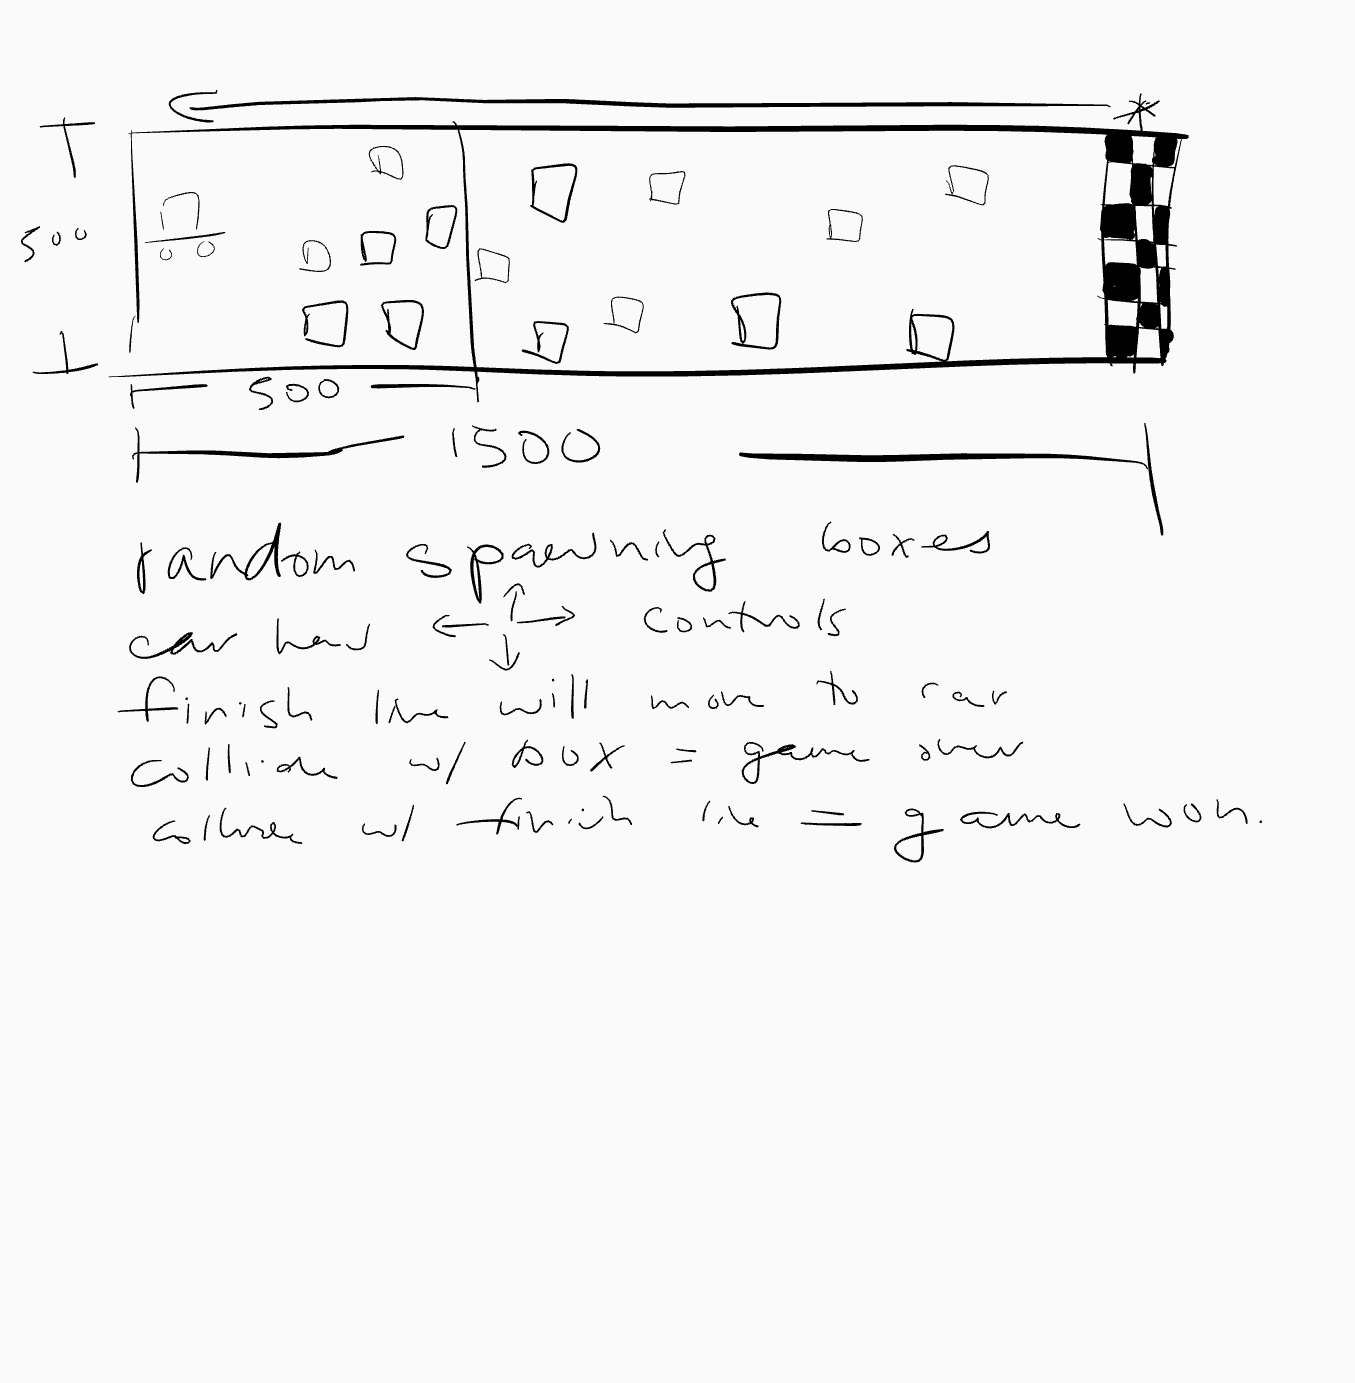 500
500
1500
random spawning boxes
car has ← ↑ ↓ → controls
finish line will move to car
collide w/ box = game over
collide w/ finish line = game won.